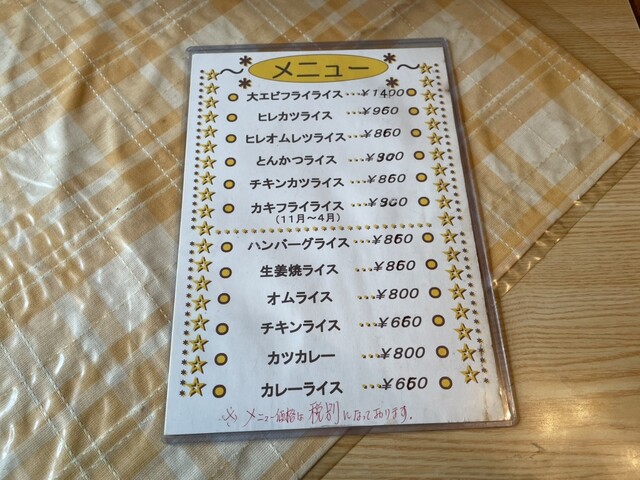 メニュー
大エビフライライス・・・¥1400
ヒレカツライス・・・¥960
ヒレオムレツライス・・・¥860
とんかつライス・・・¥900
チキンカツライス・・・¥860
カキフライライス・・・¥960
(11月～4月)
ハンバーグライス・・・¥860
生姜焼ライス・・・¥860
オムライス・・・¥800
チキンライス・・・¥660
カツカレー・・・¥800
カレーライス・・・¥660
※ メニュー価格は税別になっております。